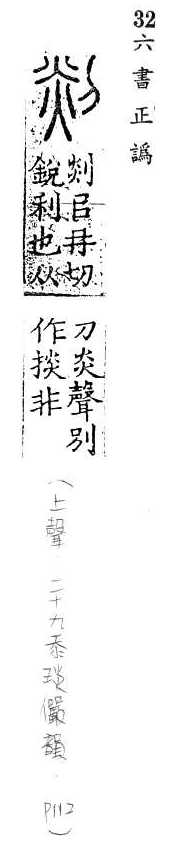 32 六書正譌
剡
剡㠯冄切
銳利也从
刀炎聲別
作掞非
(上聲 二十九忝琰儼韻. P112)